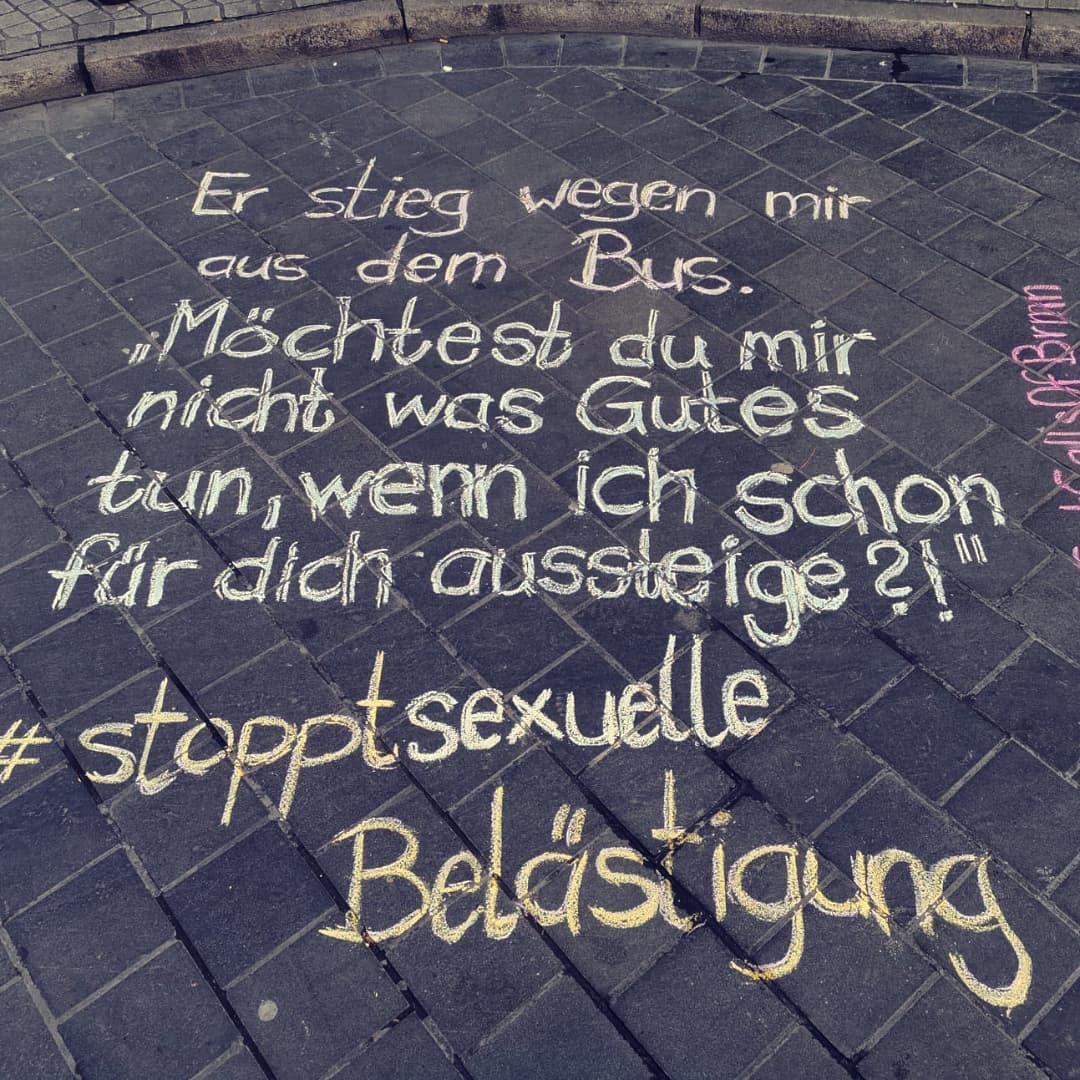 Er stieg wegen mir
aus dem Bus.
„Möchtest du mir
nicht was Gutes
tun, wenn ich schon
für dich aussteige?!"
#stopptsexuelle
Belästigung